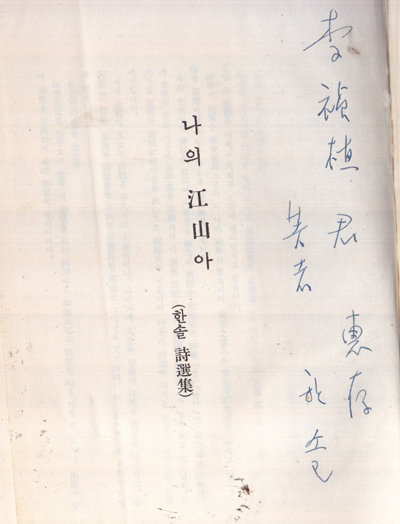 李禎植 君 惠存
한솔
나의 江山아
(한솔 詩選集)